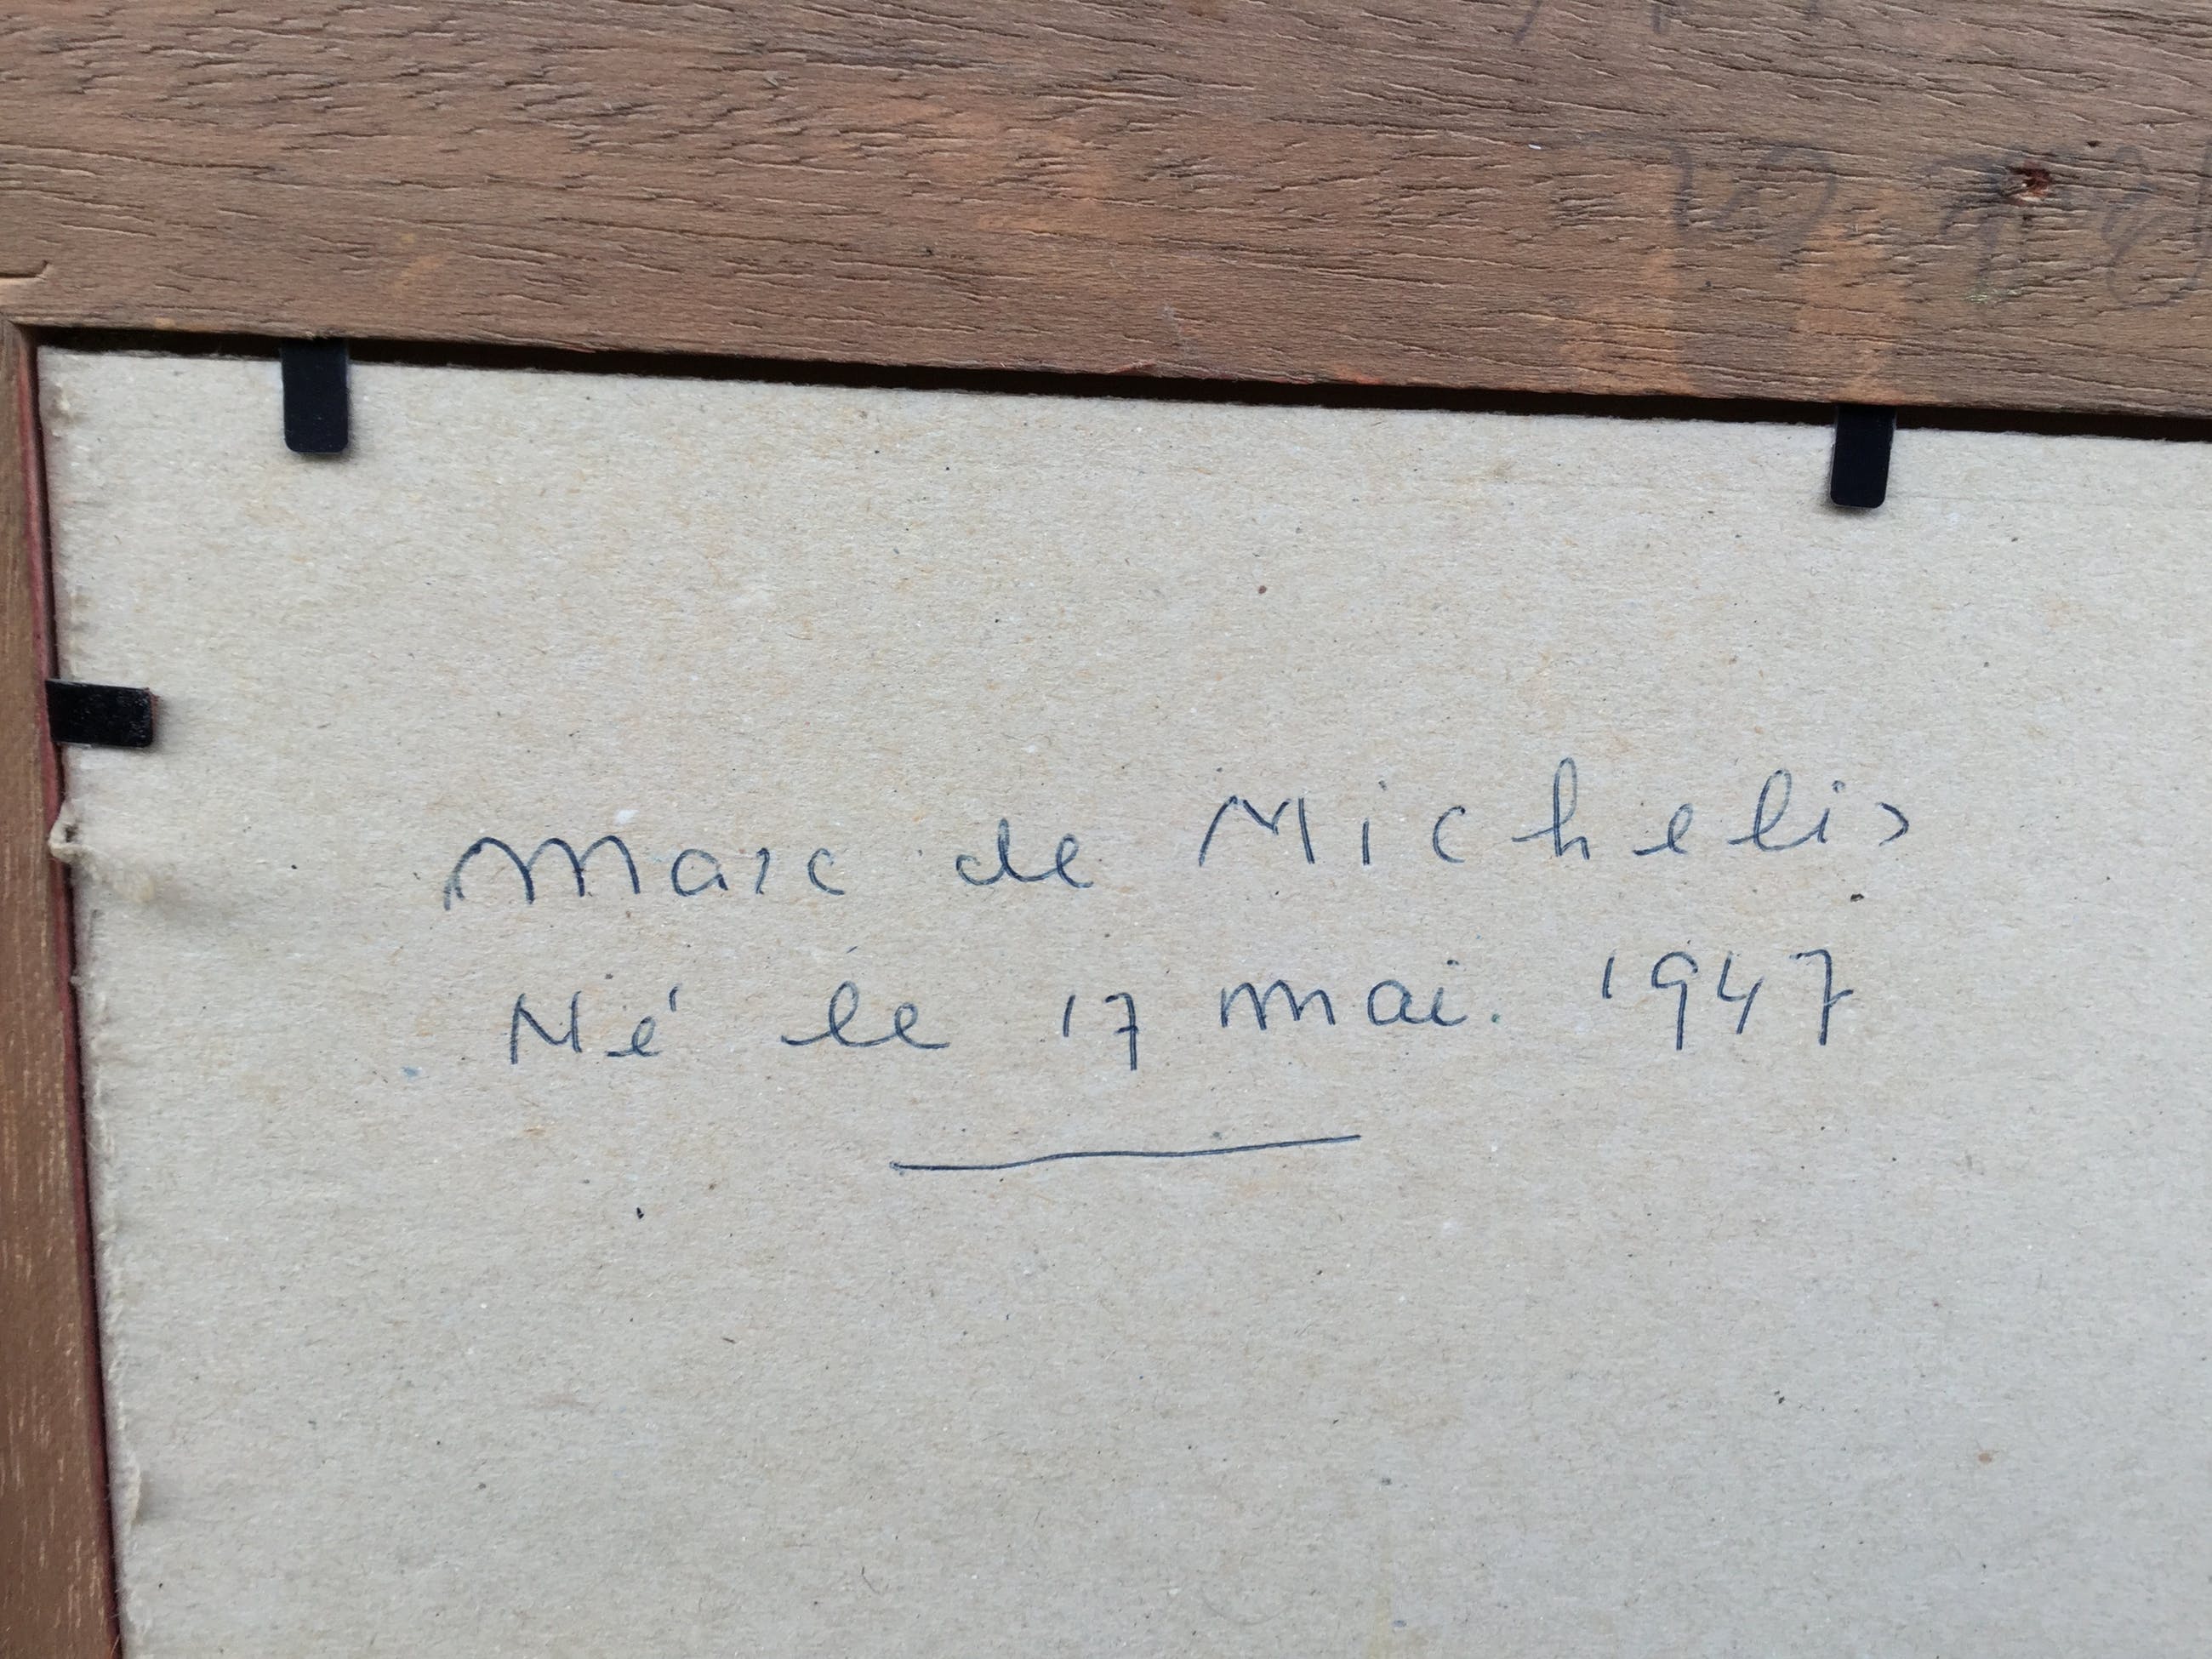 Marc de Michelis
Né le 17 mai. 1947